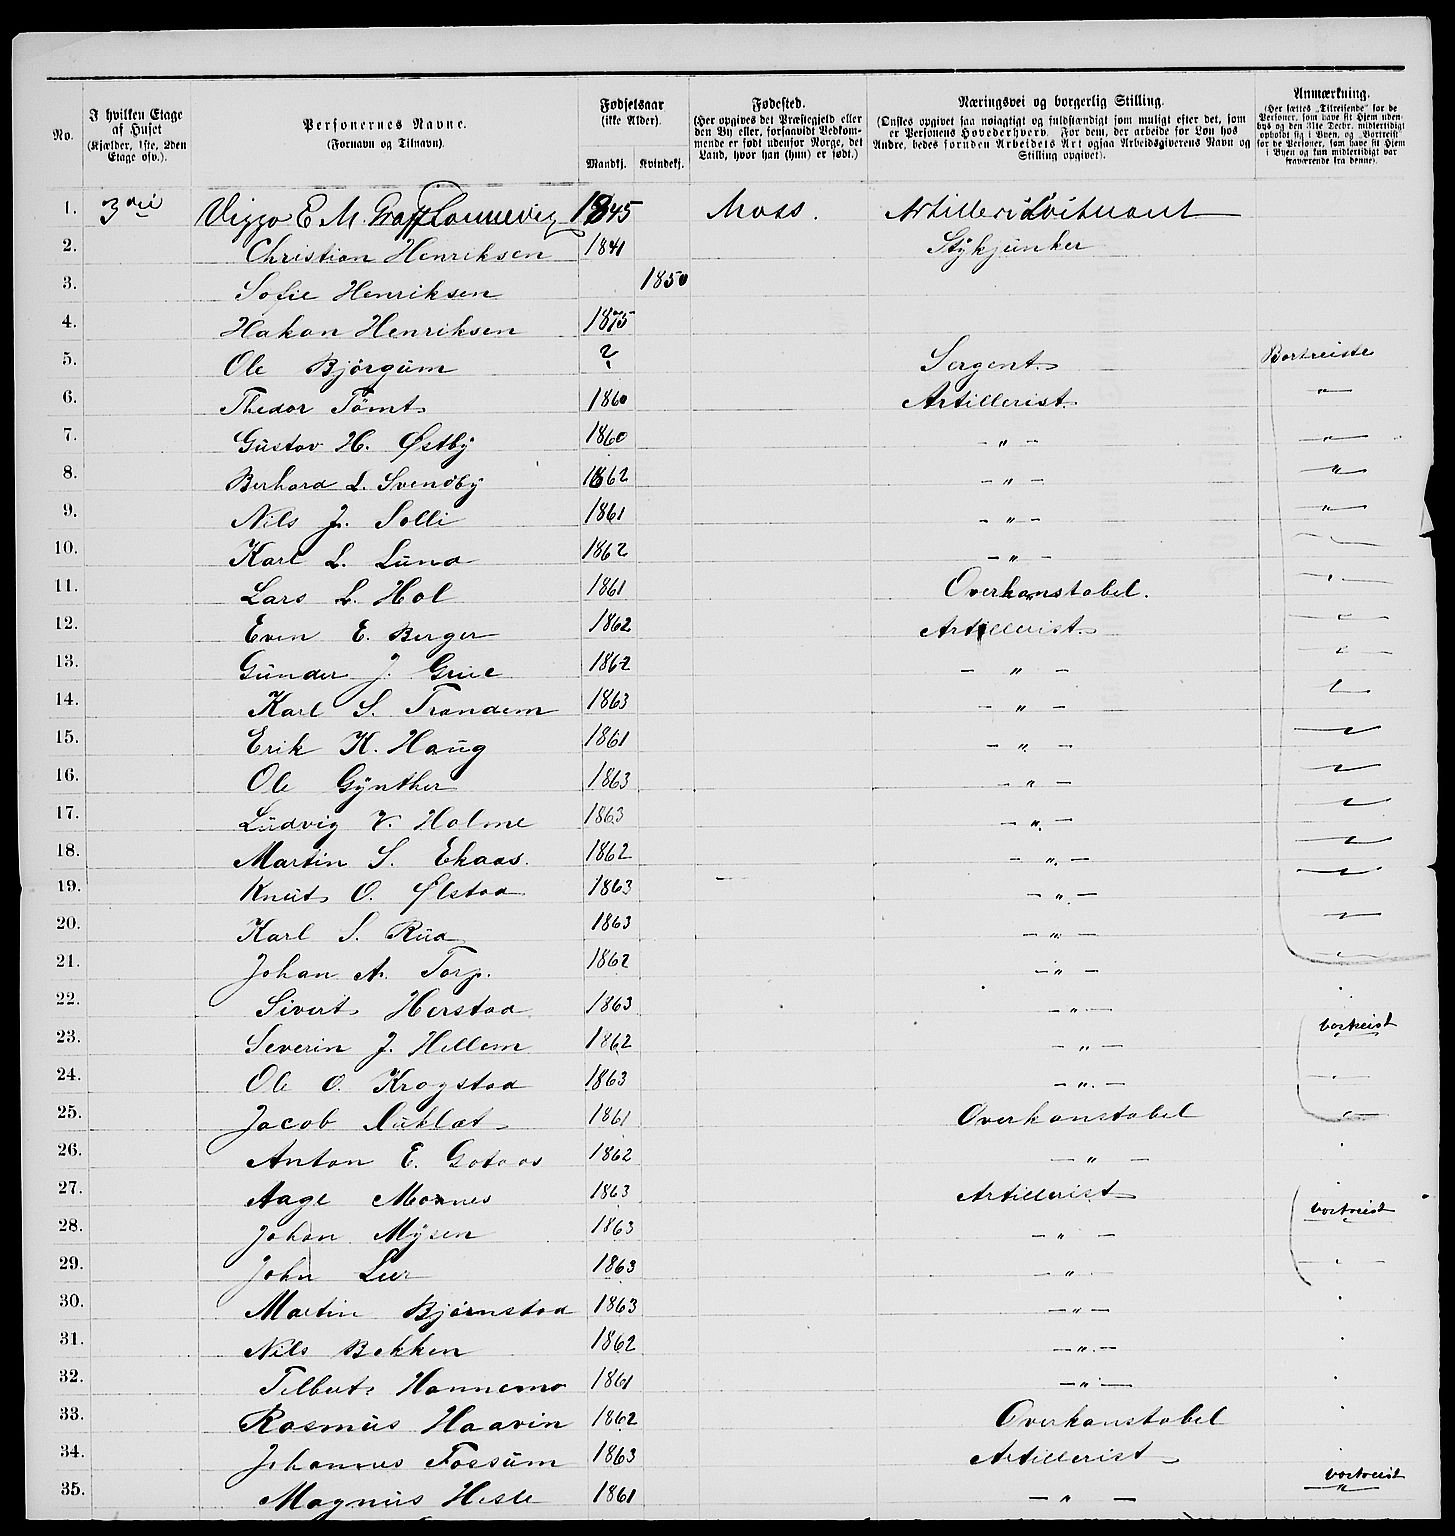 No.
I hvilken Etage af Huset (Kjælder, 1ste, 2den Etage osv.).
Personernes Navne. (Fornavn og Tilnavn).
Fødselsaar (ikke Alder).
Mandkj. Kvindekj.
Fødested. (Her opgives det Præstegjeld eller den By eller, forsaavidt Vedkommende er født udenfor Norge, det Land, hvor han (hun) er født.)
Næringsvei og borgerlig Stilling. (Ønskes opgivet saa nøiagtigt og fuldstændigt som muligt efter det, som er Personens Hovederhverv. For dem, der arbeide for Løn hos Andre, bedes foruden Arbeidets Art ogsaa Arbeidsgiverens Navn og Stilling opgivet).
Anmærkning. (Her sættes „Tilreisende" for de Personer, som have sit Hjem udenbys og den 31te Decbr. midlertidigt opholdt sig i Byen, og „Bortreist" for de Personer, som have sit Hjem i Byen og kun midlertidigt var fraværende fra denne).
1. 3die Viggo E. M. Graff 1845 Moss.
2. Christian Henriksen 1841 Stykjunker
3. Sofie Henriksen 1850
4. Hakon Henriksen 1875
5. Ole Bjørgum ? Sergent. Bortreiste
6. Thedor Tømt 1860 Artillerist. "
7. Gustav H. Østby 1860 - " - "
8. Berhard L. Svendby 1862 - " - "
9. Nils J. Solli 1861 - " - "
10. Karl L. Lund 1862 - " - "
11. Lars L. Hol 1861 Overkonstabel. "
12. Even E. Berger 1862 Artillerist. "
13. Gunder J. Grue 1862 - " - "
14. Karl S. Trondem 1863 - " - "
15. Erik K. Haug 1861 - " - "
16. Ole Gynther 1863 - " - "
17. Ludvig V. Holme 1863 - " - "
18. Martin S. Ekaas. 1862 - " - "
19. Knut O. Ølstad 1863 - " - "
20. Karl S. Rud 1863 - " - "
21. Johan A. Torp. 1862 - " - "
22. Sivert Herstad 1863 - " -
23. Severin J. Hellem 1862 - " - bortreist
24. Ole O. Krogstad 1863 - " - "
25. Jacob 1861 Overkonstabel "
26. Anton E. Gotaas 1862 - " -
27. Aage Monnes 1863 Artillerist
28. Johan Mysen 1863 - " - bortreist
29. John Lier 1863 - " - "
30. Martin Bjørnstad 1863 - " -
31. Nils Bekken 1862 - " -
32. Hannemo 1861 - " -
33. Rasmus Haavin 1862 Overkonstabel
34. Johannes Fossum 1863 Artillerist
35. Magnus Hesle 1861 - " - bortreist